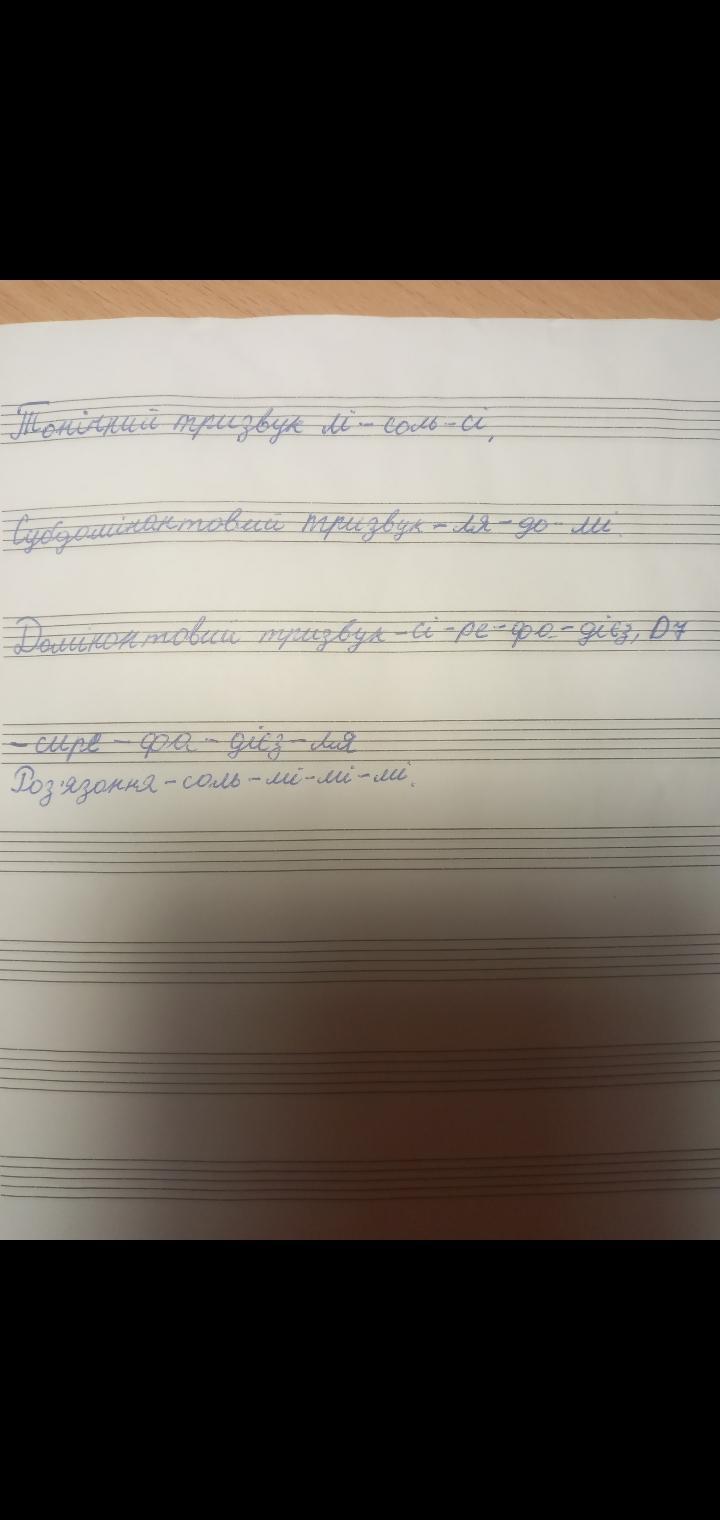 Тонічний тризвук мі - соль - сі,
Субдомінантовий тризвук - ля - до - мі.
Домінантовий тризвук - сі - ре - фа - дієз, D7
- сире - фа - дієз - ля
Роз'язання - соль - мі - мі - мі.